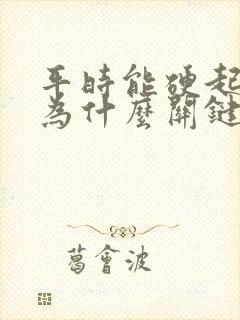 平時能硬起
為什麼關鍵
葛會波